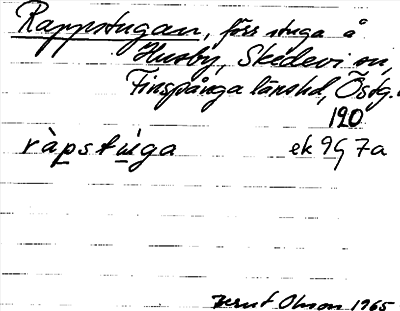 Rappstugan, förr stuga å
Husby, Skedevi sn,
Finspånga länshd, Östg.
190
ràpstúga ek 9G 7a
Bernt Olsson 1965